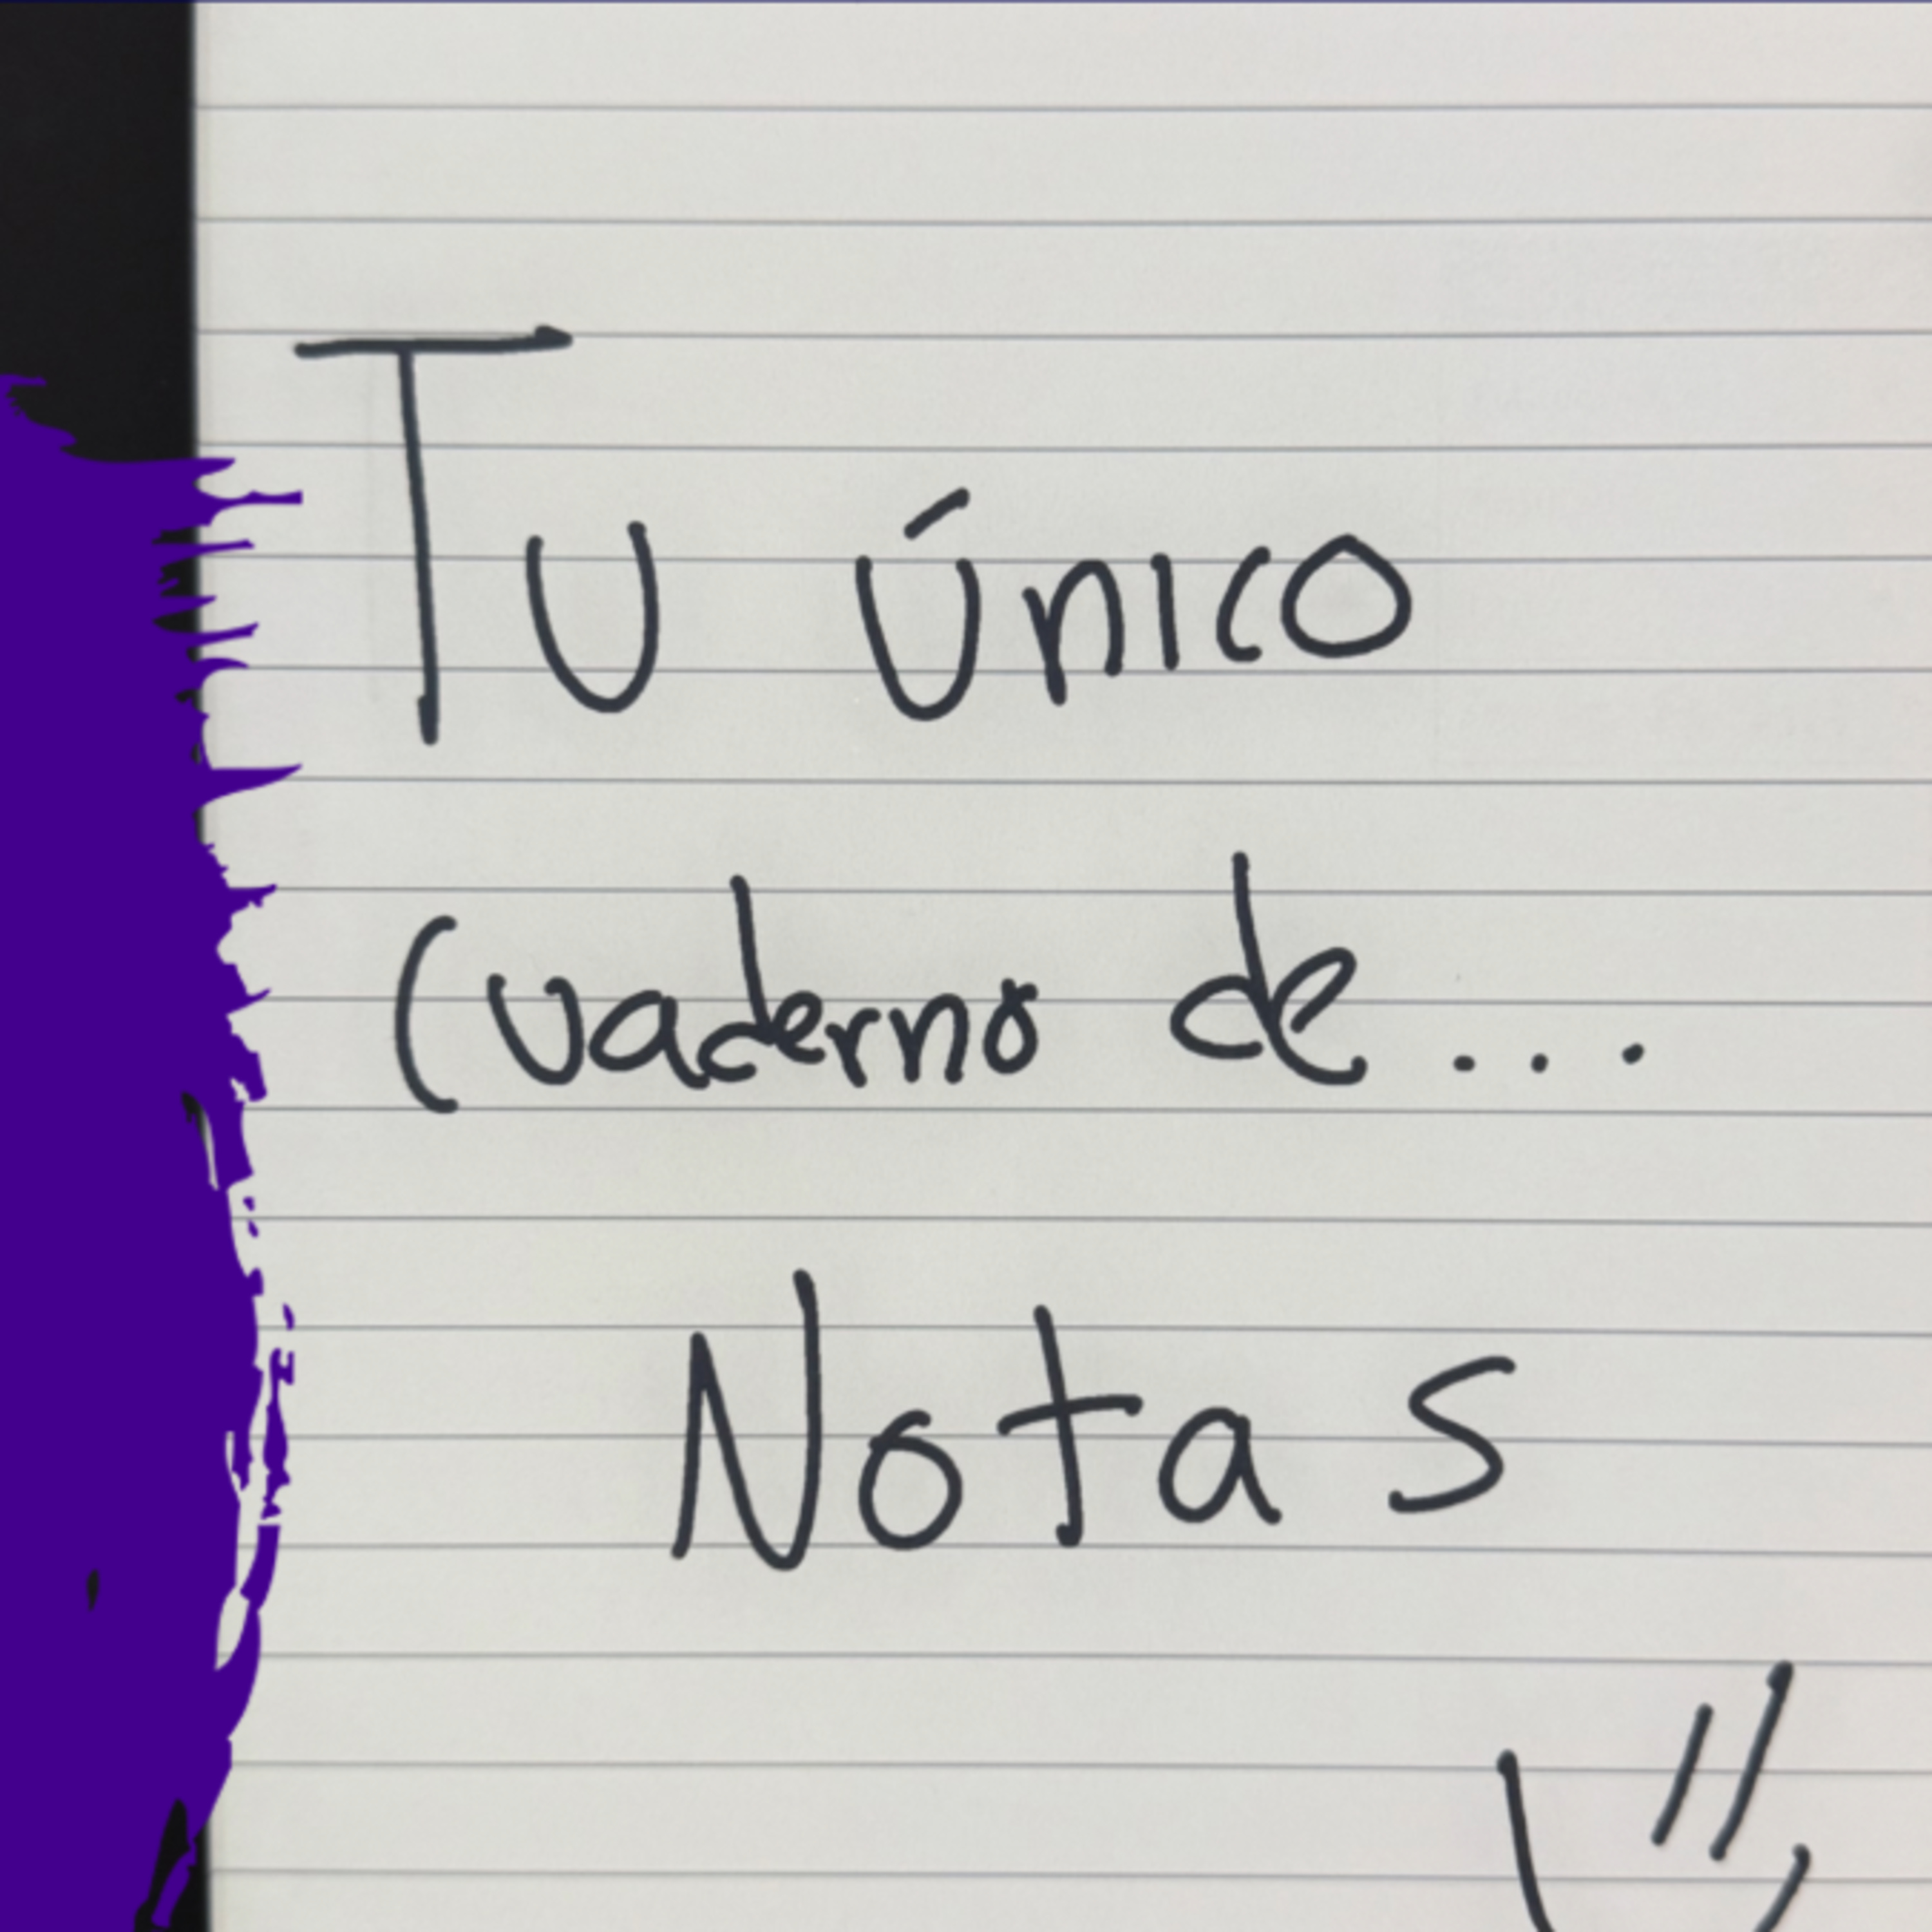 Tu único
Cuaderno de...
Notas